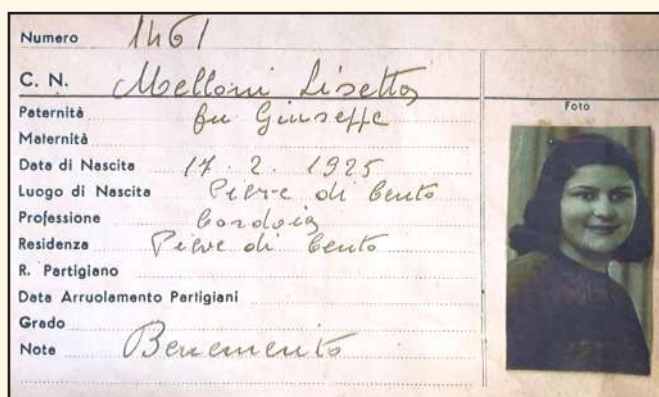 Numero 1461
C. N. Melloni Lisetta
Foto
Paternità fu Giuseppe
Maternità
Data di Nascita 17. 2. 1925
Luogo di Nascita Pieve di Cento
Professione Cordaia
Residenza Pieve di Cento
R. Partigiano
Data Arruolamento Partigiani
Grado
Note Benemerito